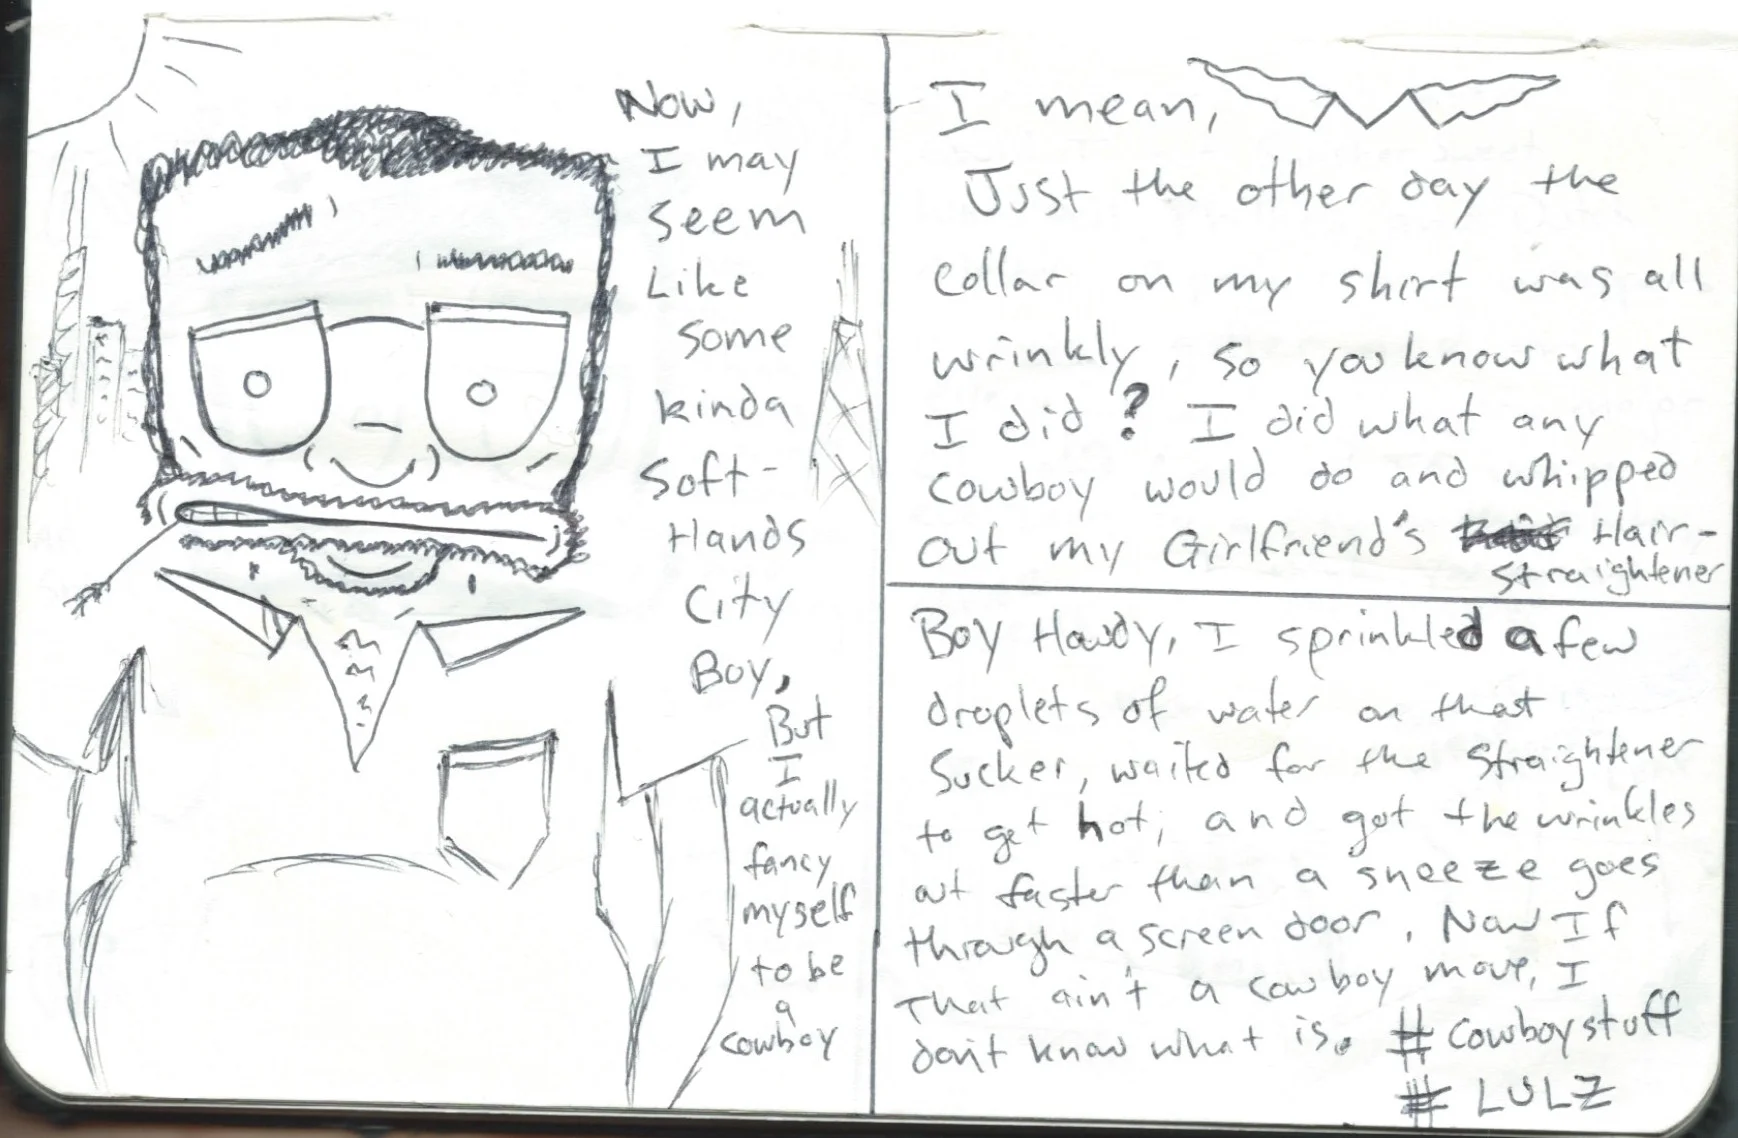 Now,
I may
seem
Like
some
kinda
Soft-
Hands
City
Boy,
But
I
actually
fancy
myself
to be
a
cowboy
I mean,
Just the other day the
collar on my shirt was all
wrinkly, so you know what
I did? I did what any
cowboy would do and whipped
out my Girlfriend's Hair-
straightener
Boy Howdy, I sprinkled a few
droplets of water on that
Sucker, waited for the straightener
to get hot, and got the wrinkles
out faster than a sneeze goes
through a screen door. Now If
That ain't a cowboy move, I
don't know what is. # cowboystuff
# LULZ